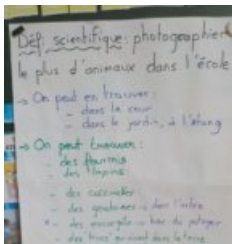 Défi scientifique : photographier
le plus d'animaux dans l'école
→ On peut en trouver :
- dans la cour
- dans le jardin, à l'étang
→ On peut trouver :
- des fourmis
- des lapins
- des coccinelles
- des gendarmes → dans l'arbre
- des escargots → bac du potager
- des